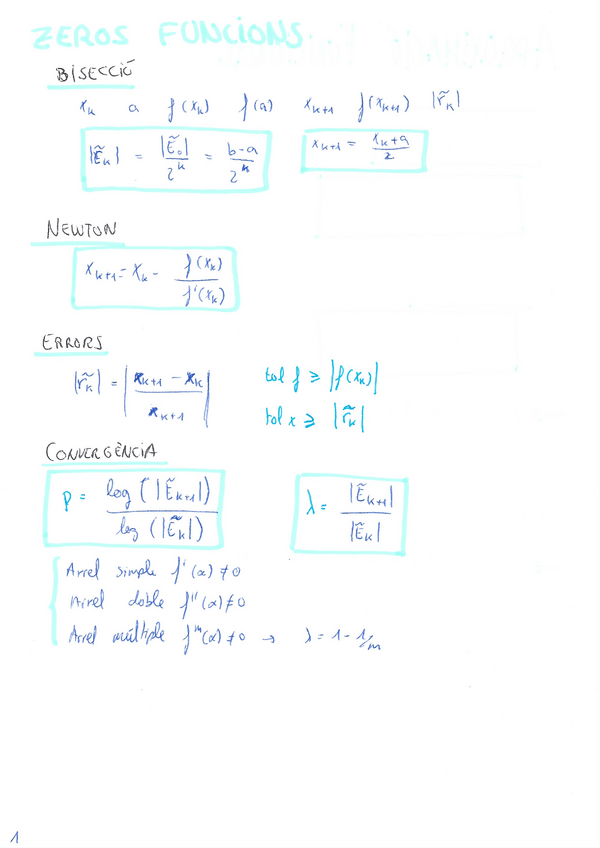 ZEROS FUNCIONS
BISECCIÓ
x_k a f(x_k) f(a) x_{k+1} f(x_{k+1}) |r̃_k|
|Ẽ_k| = |Ẽ_0| / 2^k = b-a / 2^k
x_{k+1} = x_k+a / 2
NEWTON
x_{k+1} = x_k - f(x_k) / f'(x_k)
ERRORS
|r̃_k| = | x_{k+1} - x_k / x_{k+1} |
tol f ≥ |f(x_k)|
tol x ≥ |r̃_k|
CONVERGÈNCIA
p = log (|Ẽ_{k+1}|) / log (|Ẽ_k|)
λ = |Ẽ_{k+1}| / |Ẽ_k|
Arrel simple f'(α) ≠ 0
Arrel doble f''(α) ≠ 0
Arrel múltiple f^m(α) ≠ 0 → λ = 1 - 1/m
1